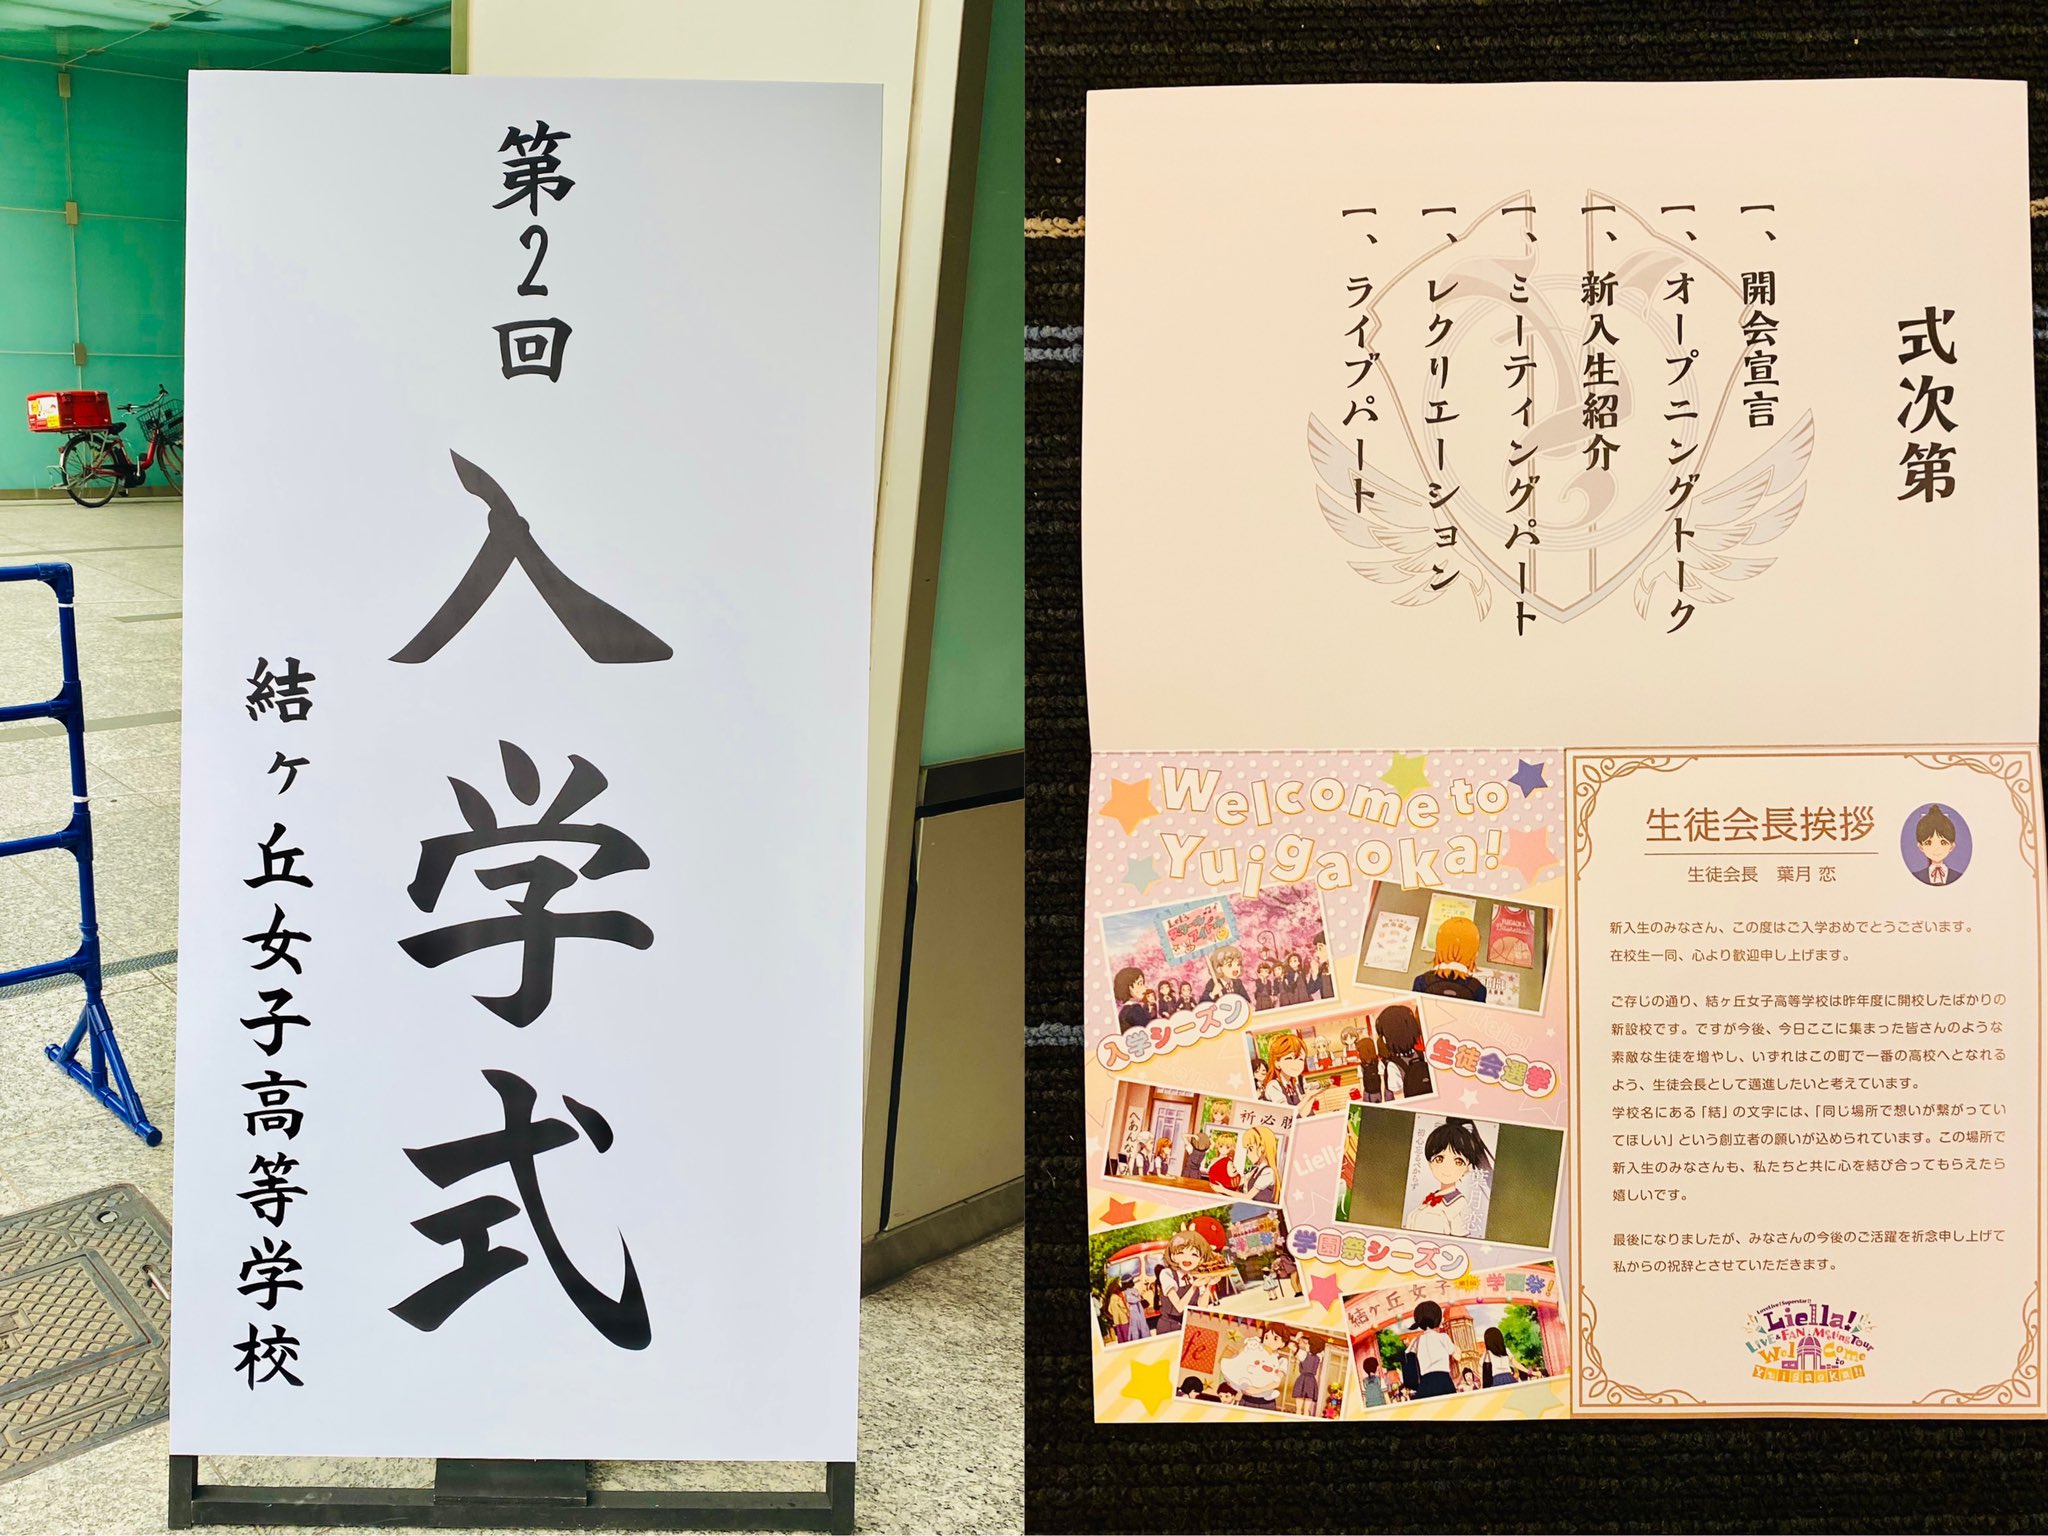 第2回
入学式
結ヶ丘女子高等学校
式次第
一、開会宣言
一、オープニングトーク
一、新入生紹介
一、ミーティングパート
一、レクリエーション
一、ライブパート
Welcome to
Yuigaoka!
入学シーズン
生徒会選挙
祈必勝
初心忘るべからず
葉月恋
学園祭シーズン
学園祭
結ヶ丘女子
学園祭!
生徒会長挨拶
生徒会長 葉月 恋
新入生のみなさん、この度はご入学おめでとうございます。
在校生一同、心より歓迎申し上げます。
ご存じの通り、結ヶ丘女子高等学校は昨年度に開校したばかりの
新設校です。ですが今後、今日ここに集まった皆さんのような
素敵な生徒を増やし、いずれはこの町で一番の高校へとなれる
よう、生徒会長として邁進したいと考えています。
学校名にある「結」の文字には、「同じ場所で想いが繋がってい
てほしい」という創立者の願いが込められています。この場所で
新入生のみなさんも、私たちと共に心を結び合ってもらえたら
嬉しいです。
最後になりましたが、みなさんの今後のご活躍を祈念申し上げて
私からの祝辞とさせていただきます。
LoveLive! Superstar!!
Liella!
LIVE & FAN Meeting Tour
Welcome to
Yuigaoka!!